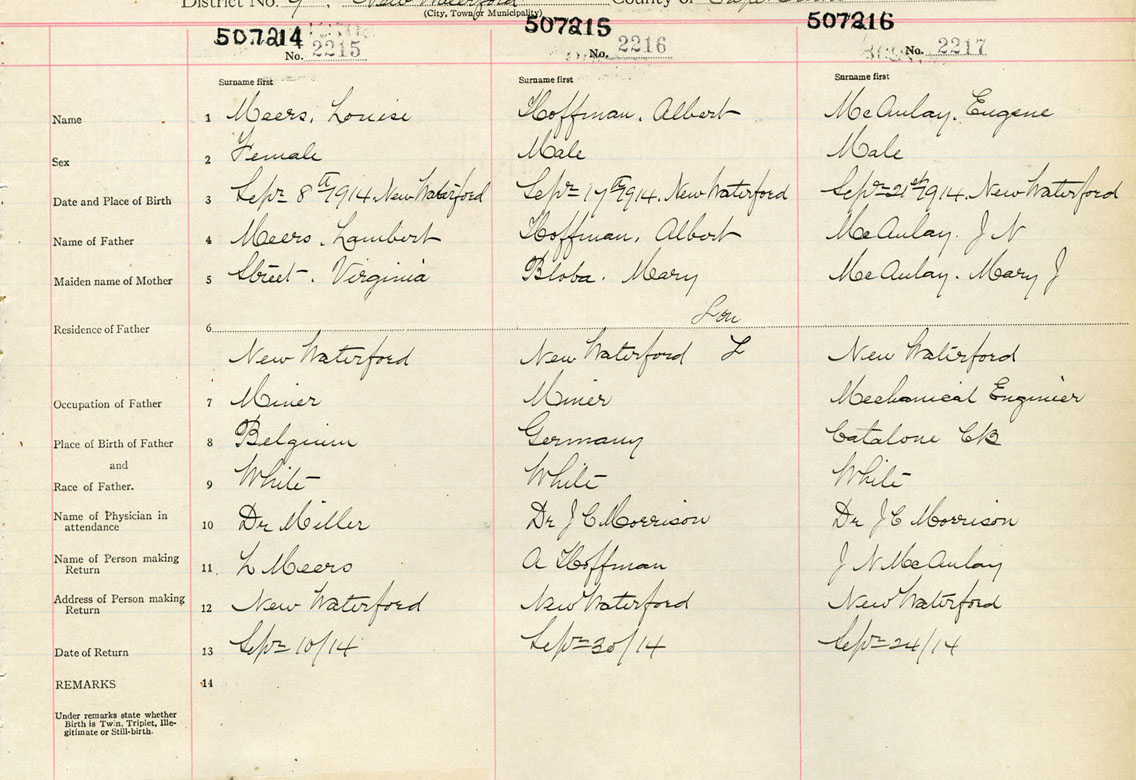 District No. 9, New Waterford County of
(City, Town or Municipality)
507214 507215 507216
No. 2215 No. 2216 No. 2217
Surname first Surname first Surname first
Name 1 Meers, Louise Hoffman, Albert McAulay, Eugene
Sex 2 Female Male Male
Date and Place of Birth 3 Sepr 8th 1914, New Waterford Sepr 17th 1914, New Waterford Sepr 21st 1914, New Waterford
Name of Father 4 Meers, Lambert Hoffman, Albert McAulay, J N
Maiden name of Mother 5 Street, Virginia Bloba, Mary McAulay, Mary J
Residence of Father 6
New Waterford New Waterford New Waterford
Occupation of Father 7 Miner Miner Mechanical Enginier
Place of Birth of Father 8 Belgium Germany Catalone CB
and
Race of Father. 9 White White White
Name of Physician in
attendance 10 Dr Miller Dr J C Morrison Dr J C Morrison
Name of Person making
Return 11. L Meers A Hoffman J N McAulay
Address of Person making
Return 12 New Waterford New Waterford New Waterford
Date of Return 13 Sepr 10/14 Sepr 30/14 Sepr 24/14
REMARKS 14
Under remarks state whether
Birth is Twin, Triplet, Ille-
gitimate or Still-birth.